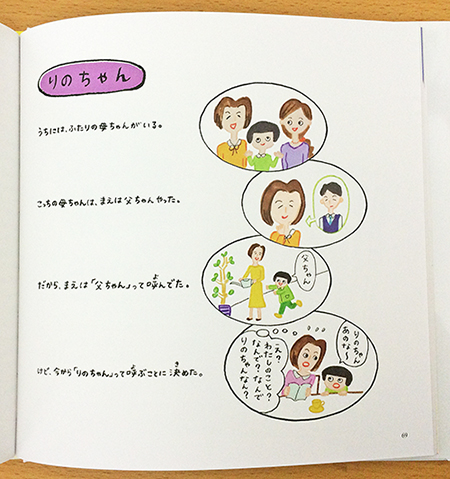 りのちゃん
うちには、ふたりの母ちゃんがいる。
こっちの母ちゃんは、まえは父ちゃんやった。
父ちゃん
だから、まえは「父ちゃん」って呼んでた。
よ
りのちゃん
あのな〜
え?
わたしのこと?
なんで?なんで
りのちゃんなん?
けど、今から「りのちゃん」って呼ぶことに決めた。
よ
き
69